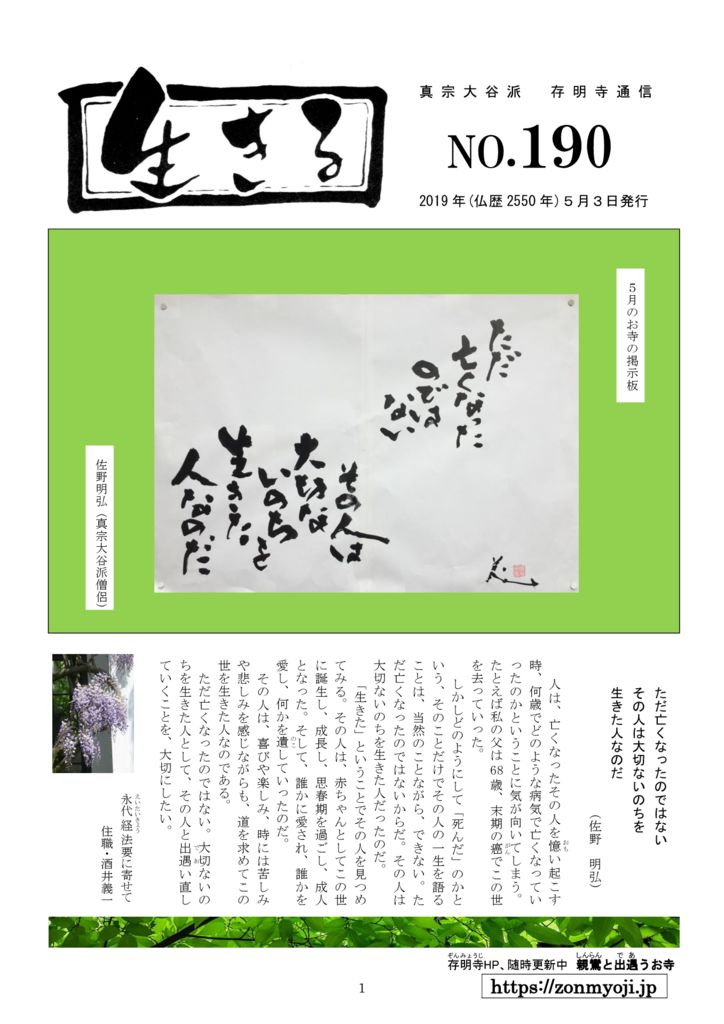 生きる
真宗大谷派　存明寺通信
NO.190
2019年(仏歴2550年)５月３日発行
５月のお寺の掲示板
ただ
亡くなった
のでは
ない
その人は
大切な
いのちを
生きた
人なのだ
佐野明弘（真宗大谷派僧侶）
ただ亡くなったのではない
その人は大切ないのちを
生きた人なのだ
（佐野　明弘）
人は、亡くなったその人を憶い起こす
時、何歳でどのような病気で亡くなってい
ったのかということに気が向いてしまう。
たとえば私の父は68歳、末期の癌でこの世
を去っていった。
しかしどのようにして「死んだ」のかと
いう、そのことだけでその人の一生を語る
ことは、当然のことながら、できない。た
だ亡くなったのではないからだ。その人は
大切ないのちを生きた人だったのだ。
「生きた」ということでその人を見つめ
てみる。その人は、赤ちゃんとしてこの世
に誕生し、成長し、思春期を過ごし、成人
となった。そして、誰かに愛され、誰かを
愛し、何かを遺していったのだ。
その人は、喜びや楽しみ、時には苦しみ
や悲しみを感じながらも、道を求めてこの
世を生きた人なのである。
ただ亡くなったのではない。大切ないの
ちを生きた人として、その人と出遇い直し
ていくことを、大切にしたい。
永代経法要に寄せて
住職・酒井義一
存明寺HP、随時更新中　親鸞と出遇うお寺
https://zonmyoji.jp
1